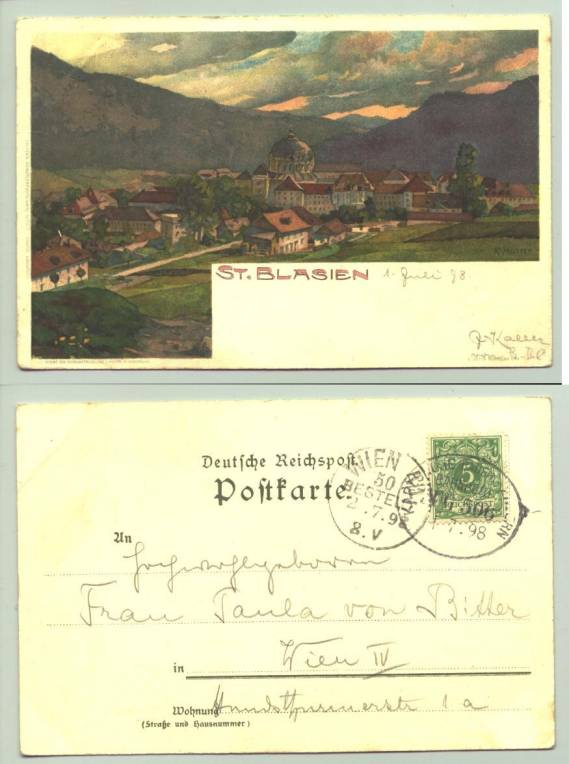 ST. BLASIEN 1. Juli 98.
Deutsche Reichspost
Postkarte.
WIEN
50
BESTELLT
2. 7. 9
8. V
5
ZUG 506
7. 98
An
Hochwohlgeboren
Frau Paula von Bitter
in Wien IV
Wohnung Hundsthurmerstr 1a
(Straße und Hausnummer)